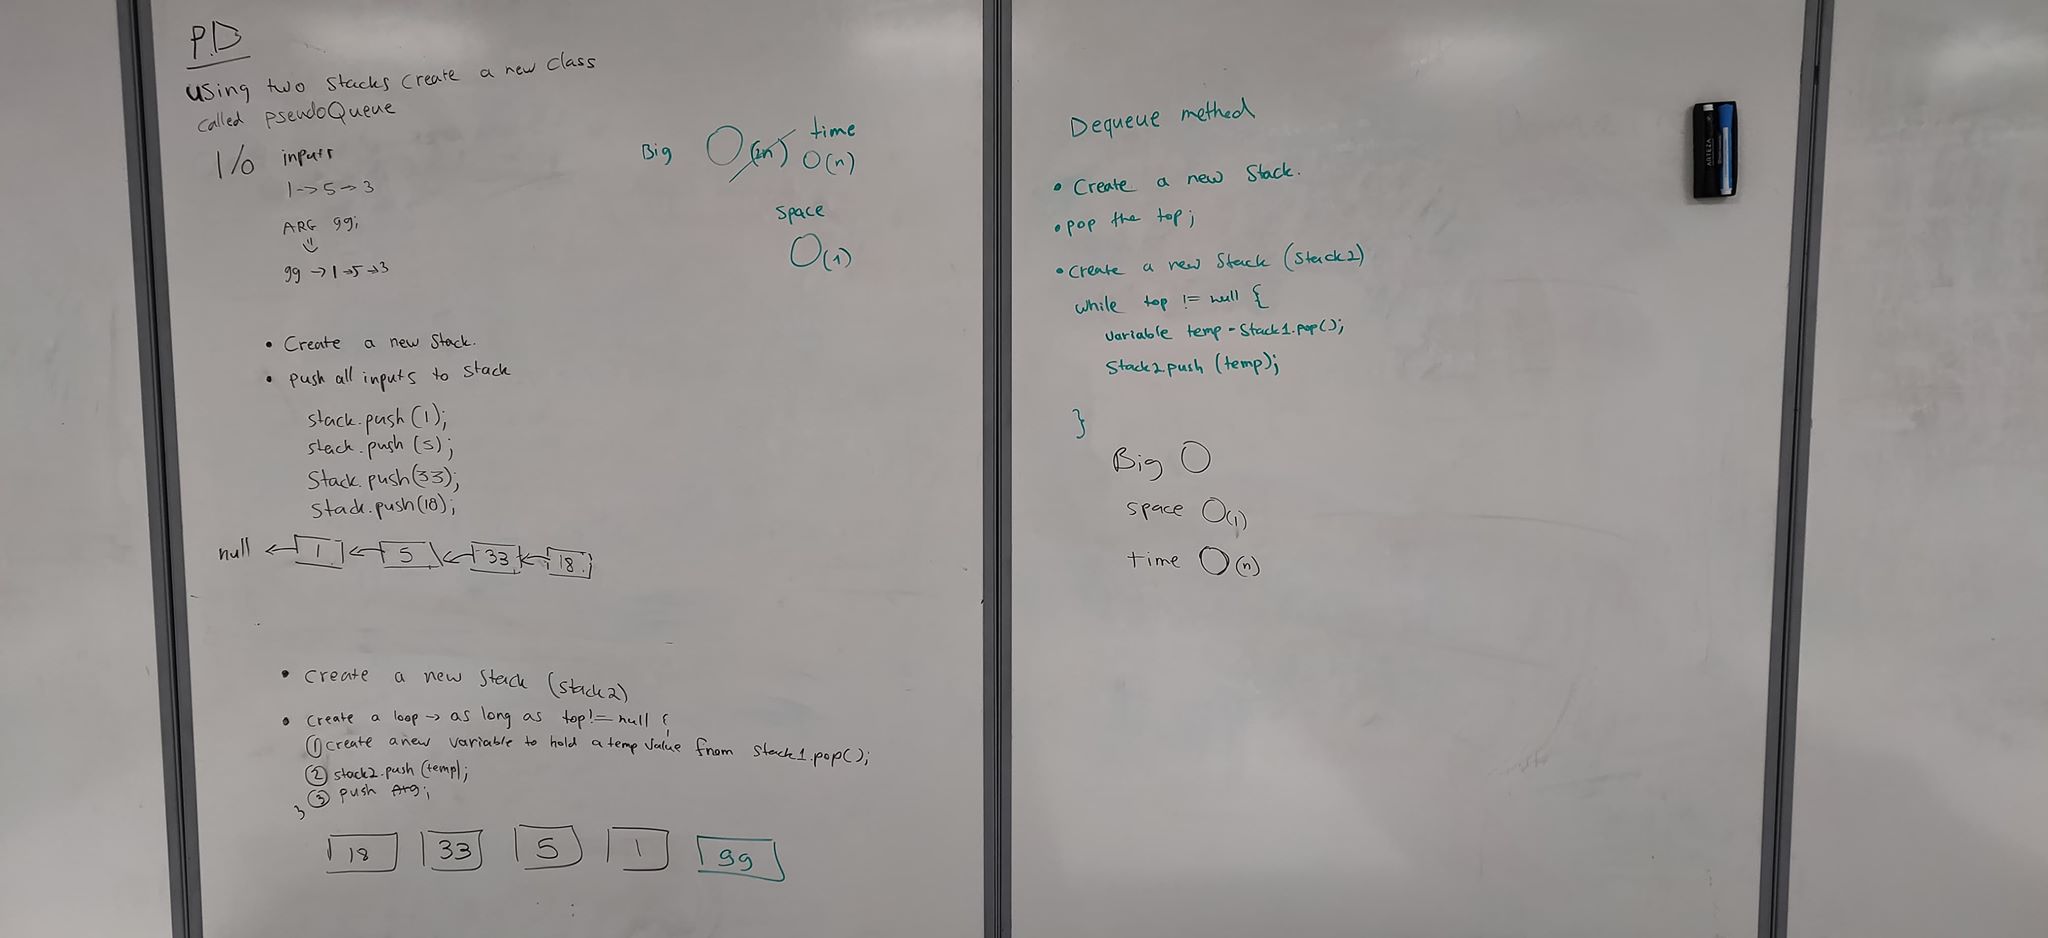 PD
Using two stacks create a new class
called pseudoQueue
I/O inputs
1 -> 5 -> 3
ARG 99;
99 -> 1 -> 5 -> 3
Big O(2n) time
O(n)
space
O(1)
• Create a new stack.
• push all inputs to stack
stack.push(1);
stack.push(5);
Stack.push(33);
Stack.push(18);
null <- 1 <- 5 <- 33 <- 18
• create a new stack (stack2)
• create a loop -> as long as top != null {
① create a new variable to hold a temp value from stack1.pop();
② stack2.push(temp);
③ push Arg;
}
18 33 5 1 99
Dequeue method
• Create a new Stack.
• pop the top;
• Create a new Stack (Stack2)
while top != null {
variable temp = Stack1.pop();
Stack2.push(temp);
}
Big O
space O(1)
time O(n)
ARTEZA